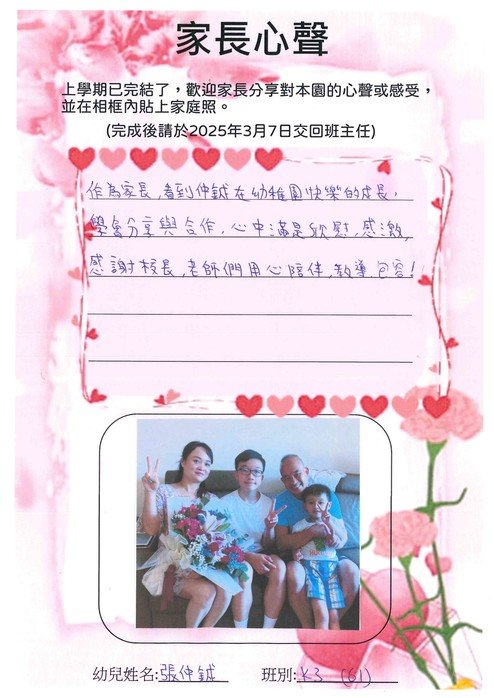 家長心聲
上學期已完結了，歡迎家長分享對本園的心聲或感受，
並在相框內貼上家庭照。
(完成後請於2025年3月7日交回班主任)
作為家長，看到仲鋮在幼稚園快樂的成長，
學會分享與合作，心中滿是欣慰，感激，
感謝校長，老師們用心陪伴，教導，包容！
幼兒姓名:張仲鋮 班別:K3 (61)